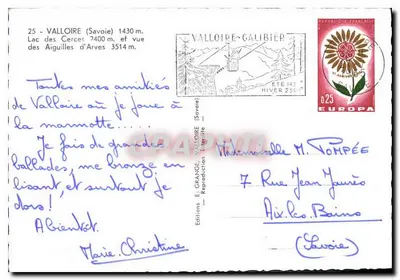 25 - VALLOIRE (Savoie) 1430 m.
Lac des Cerces 2400 m. et vue
des Aiguilles d'Arves 3514 m.
Toutes mes amitiés
de Valloire où je joue à
la marmotte...
Je fais de grandes
ballades, me bronze en
lisant, et surtout je
dors!
A bientôt.
Marie-Christine
Editions E. GRANGE, VALLOIRE (Savoie)
Reproduction interdite
VALLOIRE-GALIBIER
ETE
HIVER
REPUBLIQUE FRANÇAISE
0,25
EUROPA
Mademoiselle M. POMPÉE
7 Rue Jean Jaurès
Aix-les-Bains
(Savoie)
CPARAMA.COM